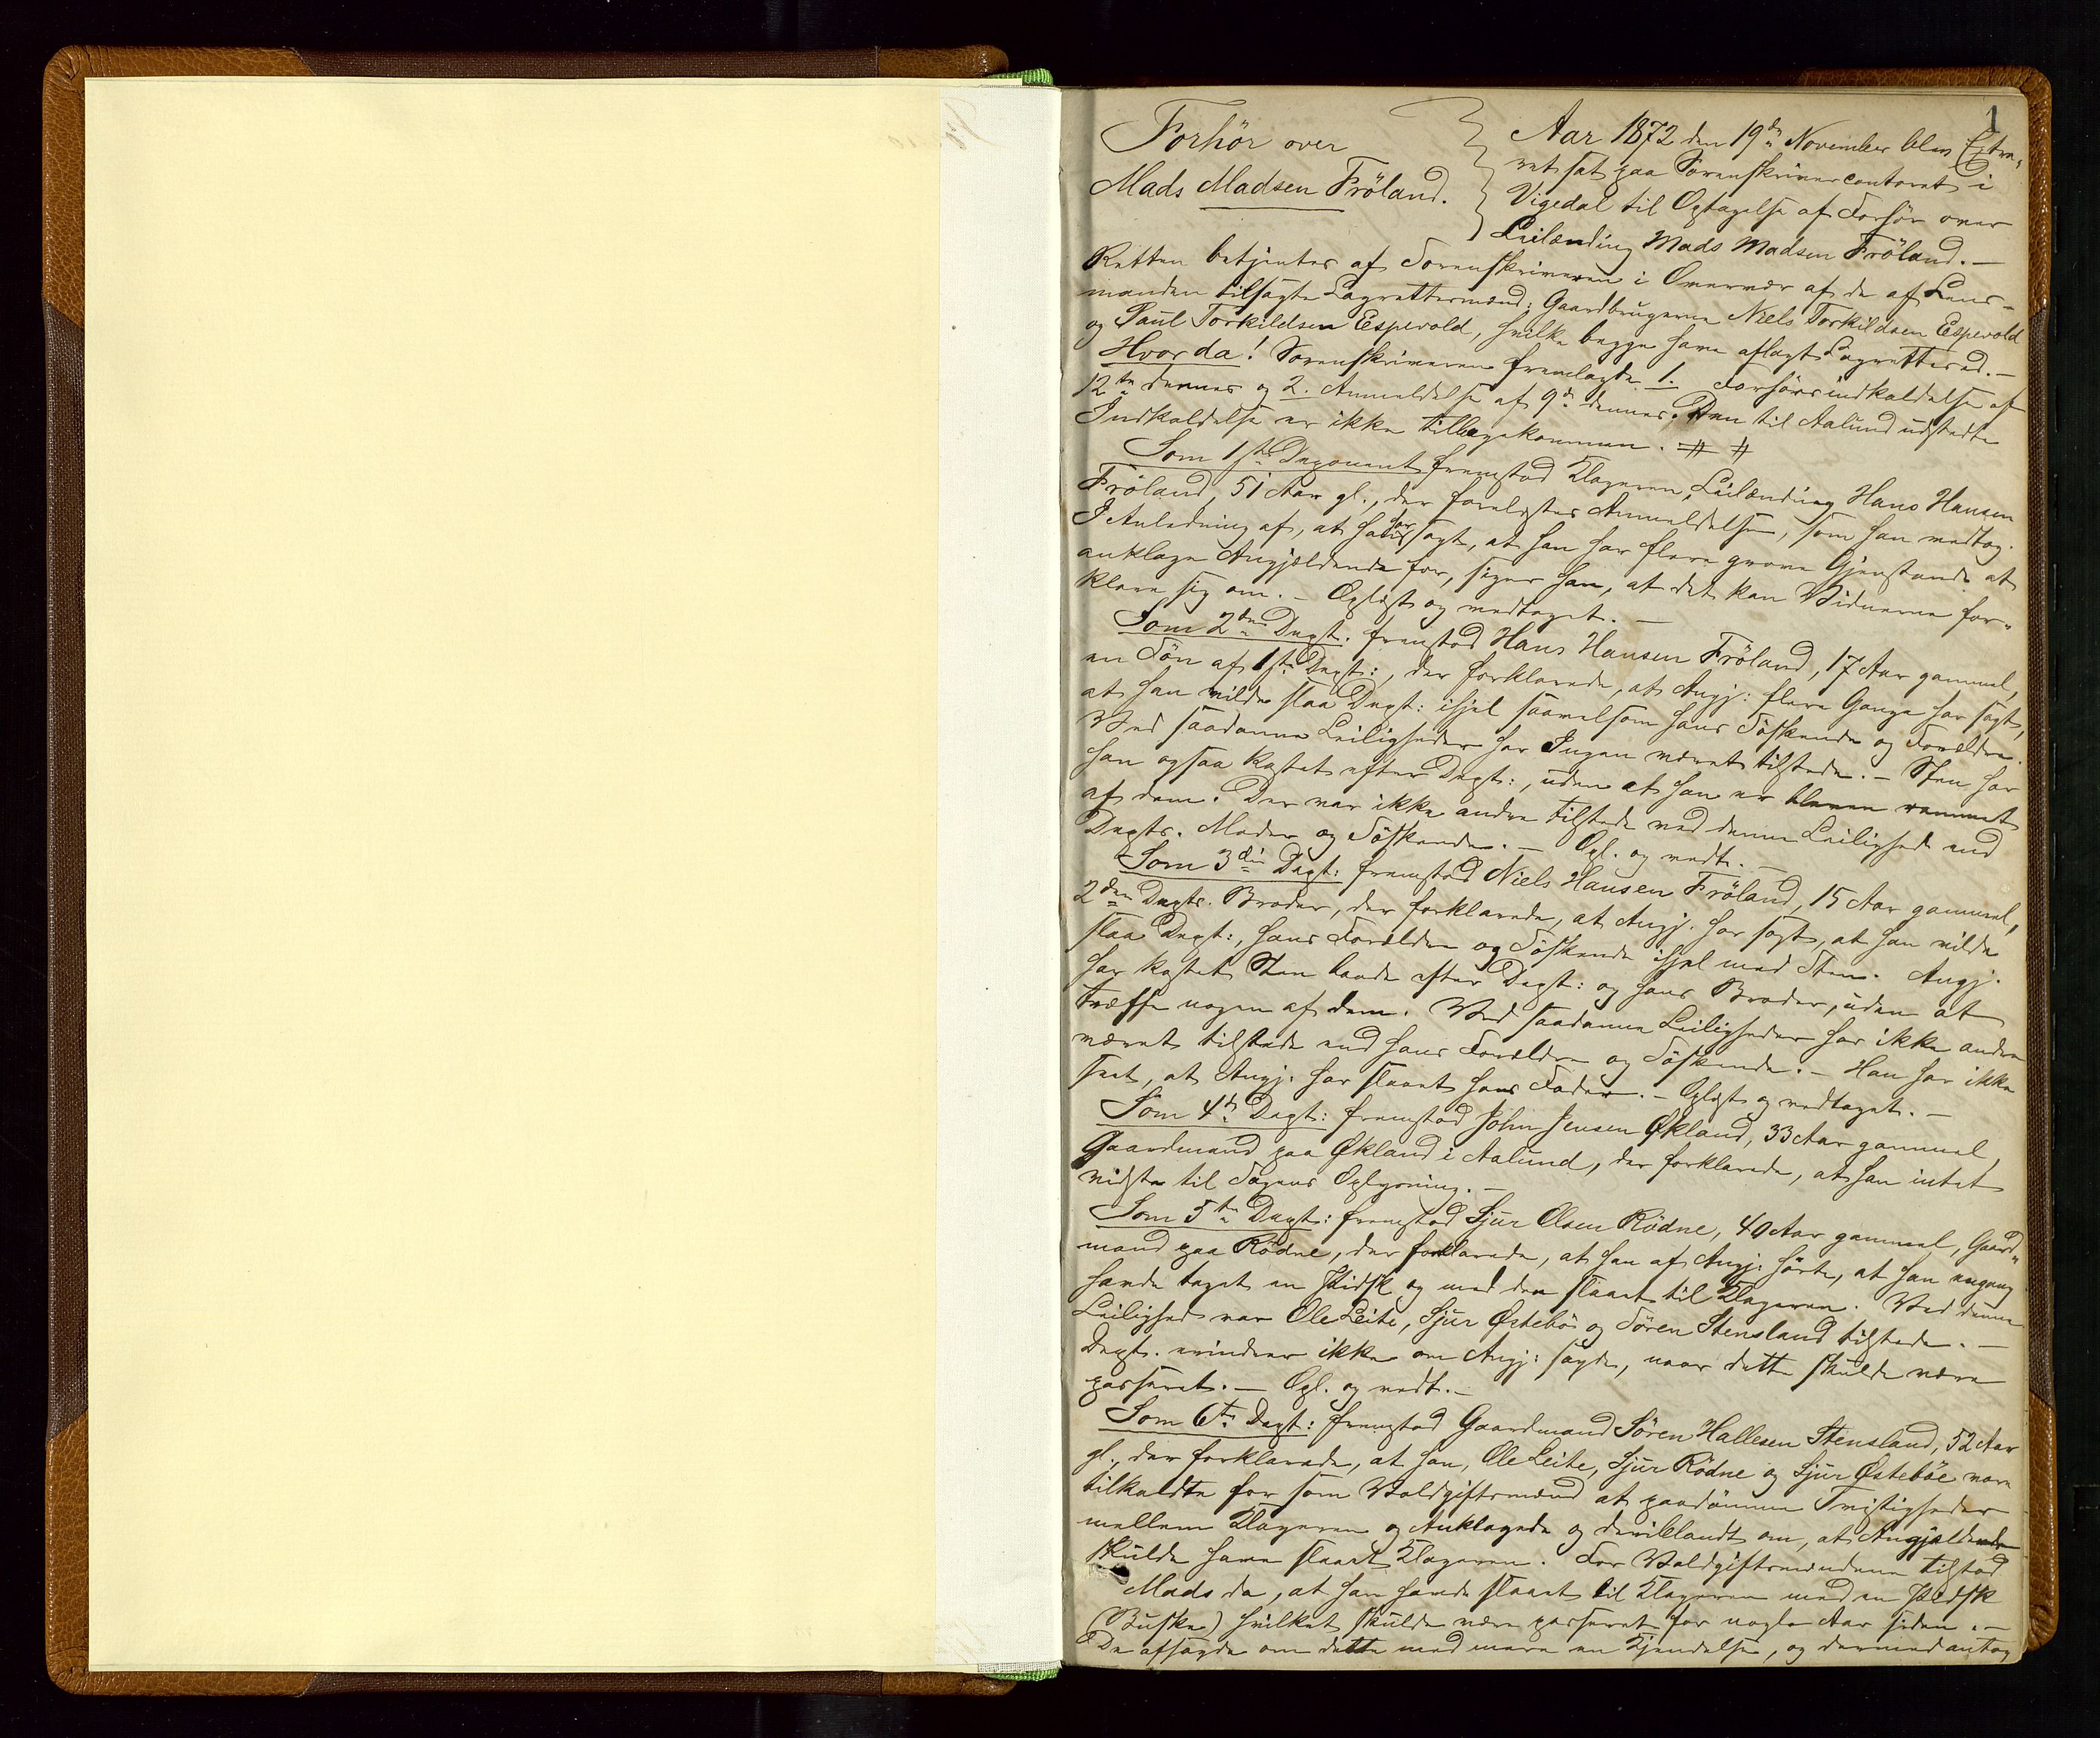 1
Forhör over
Mads Madsen Fröland.
Aar 1872 den 19de November blev Extra-
ret sat paa Sorenskrivercontoret i
Vigedal til Optagelse af Forhör over
Leilænding Mads Madsen Fröland. —
Retten betjentes af Sorenskriveren i Overvær af de af Lens-
manden tilsagte Lagrettemænd: Gaardbrugerne Niels Torkildsen Espevold
og Paul Torkildsen Espevold, hvilke begge have aflagt Lagretteed. —
Hvorda! Sorenskriveren fremlagde 1. Forhörsindkaldelse af
12te dennes og 2. Anmeldelse af 9de dennes. Den til Aalund udstedte
Indkaldelse er ikke tilbagekommen. # #
Som 1ste Deponent fremstod Klageren, Leilænding Hans Hansen
Fröland, 51 Aar gl., der forelæstes Anmeldelsen, som han vedtog.
I Anledning af, at han har sagt, at han har flere grove Gjenstande at
anklage Angjældende for, siger han, at det kan Vidnerne for-
klare sig om. — Oplæst og vedtaget. —
Som 2den Dept. fremstod Hans Hansen Fröland, 17 Aar gammel,
en Sön af 1ste Dept:, der forklarede, at Angj: flere Gange har sagt,
at han vilde slaa Dept: ihjel saavelsom hans Söskende og Forældre.
Ved saadanne Leiligheder har Ingen været tilstede. — Sten har
han ogsaa kastet efter Dept:, uden at han er bleven rammet
af dem. Der var ikke andre tilstede ved denne Leilighed end
Depts. Moder og Söskende. — Opl. og vedt. —
Som 3die Dept: fremstod Niels Hansen Fröland, 15 Aar gammel,
2den Depts. Broder, der forklarede, at Angj. har sagt, at han vilde
slaa Dept:, hans Forældre og Söskende ihjel med Sten. Angj.
har kastet Sten baade efter Dept: og hans Broder, uden at
træffe nogen af dem. Ved saadanne Leiligheder har ikke andre
været tilstede end hans Forældre og Söskende. — Han har ikke
seet, at Angj. har slaaet hans Fader. — Oplæst og vedtaget. —
Som 4de Dept: fremstod John Jensen Økland, 33 Aar gammel,
Gaardmand paa Økland i Aalund, der forklarede, at han intet
vidste til Sagens Oplysning. —
Som 5te Dept: fremstod Sjur Olsen Rödne, 40 Aar gammel, Gaard-
mand paa Rödne, der forklarede, at han af Angj: hörte, at han engang
havde taget en Hidsk og med den slaaet til Klageren. Ved denne
Leilighed var Ole Leite, Sjur Østebö og Sören Stensland tilstede. —
Dept. erindrer ikke om Angj: sagde, naar dette skulde være
passeret. — Opl. og vedt. —
Som 6te Dept: fremstod Gaardmand Sören Hallesen Stensland, 52 Aar
gl., der forklarede, at han, Ole Leite, Sjur Rödne og Sjur Østeböe vare
tilkaldte for som Voldgiftsmænd at paadömme Tvistigheder
mellem Klageren og Anklagede og deriblandt om, at Angjældende
skulde have slaaet Klageren. For Voldgiftsmændene tilstod
Mads da, at han havde slaaet til Klageren med en Hidsk
(Buske) hvilket skulde være passeret for nogle Aar siden. —
De afsagde om dette med mere en Kjendelse, og dermed antog